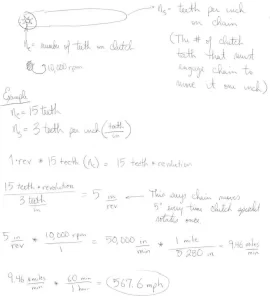 n₈ = teeth per inch
on chain
n_c = number of teeth on clutch
(The # of clutch
teeth that must
engage chain to
move it one inch)
10,000 rpm
Example
n_c = 15 teeth
n₈ = 3 teeth per inch (teeth/in)
1 rev * 15 teeth (n_c) = 15 teeth * revolution
15 teeth * revolution / 3 teeth/in = 5 in/rev ← This says chain moves
5" every time clutch sprocket
rotates once.
5 in/rev * 10,000 rpm/1 = 50,000 in/min * 1 mile/5280 in = 9.46 miles/min
9.46 miles/min * 60 min/1 hour = 567.6 mph